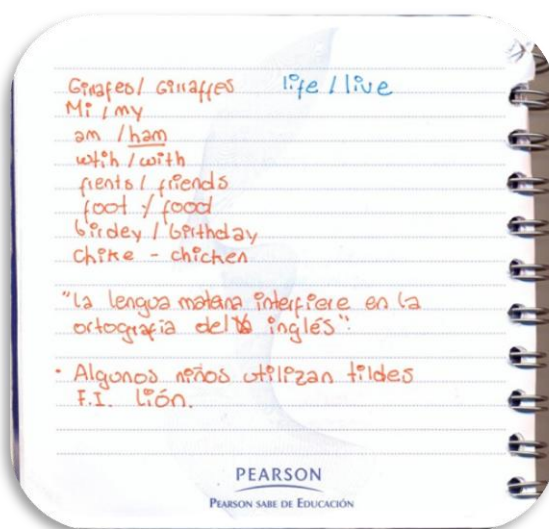 Girafes / Giraffes life / live
Mi / my
am / ham
wtih / with
frents / friends
foot / food
birdey / birthday
chike - chicken
"la lengua materna interfiere en la
ortografía del inglés".
· Algunos niños utilizan tildes
F.I. Lión.
PEARSON
PEARSON SABE DE EDUCACIÓN